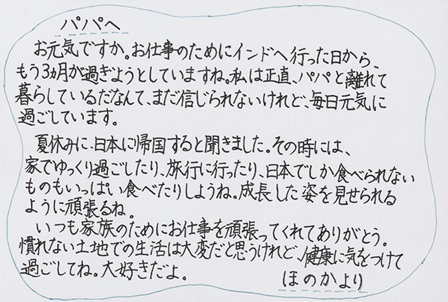 パパへ
お元気ですか。お仕事のためにインドへ行った日から、
もう3ヵ月が過ぎようとしていますね。私は正直、パパと離れて
暮らしているだなんて、まだ信じられないけれど、毎日元気に
過ごしています。
夏休みに、日本に帰国すると聞きました。その時には、
家でゆっくり過ごしたり、旅行に行ったり、日本でしか食べられない
ものもいっぱい食べたりしようね。成長した姿を見せられる
ように頑張るね。
いつも家族のためにお仕事を頑張ってくれてありがとう。
慣れない土地での生活は大変だと思うけれど、健康に気をつけて
過ごしてね。大好きだよ。
ほのかより